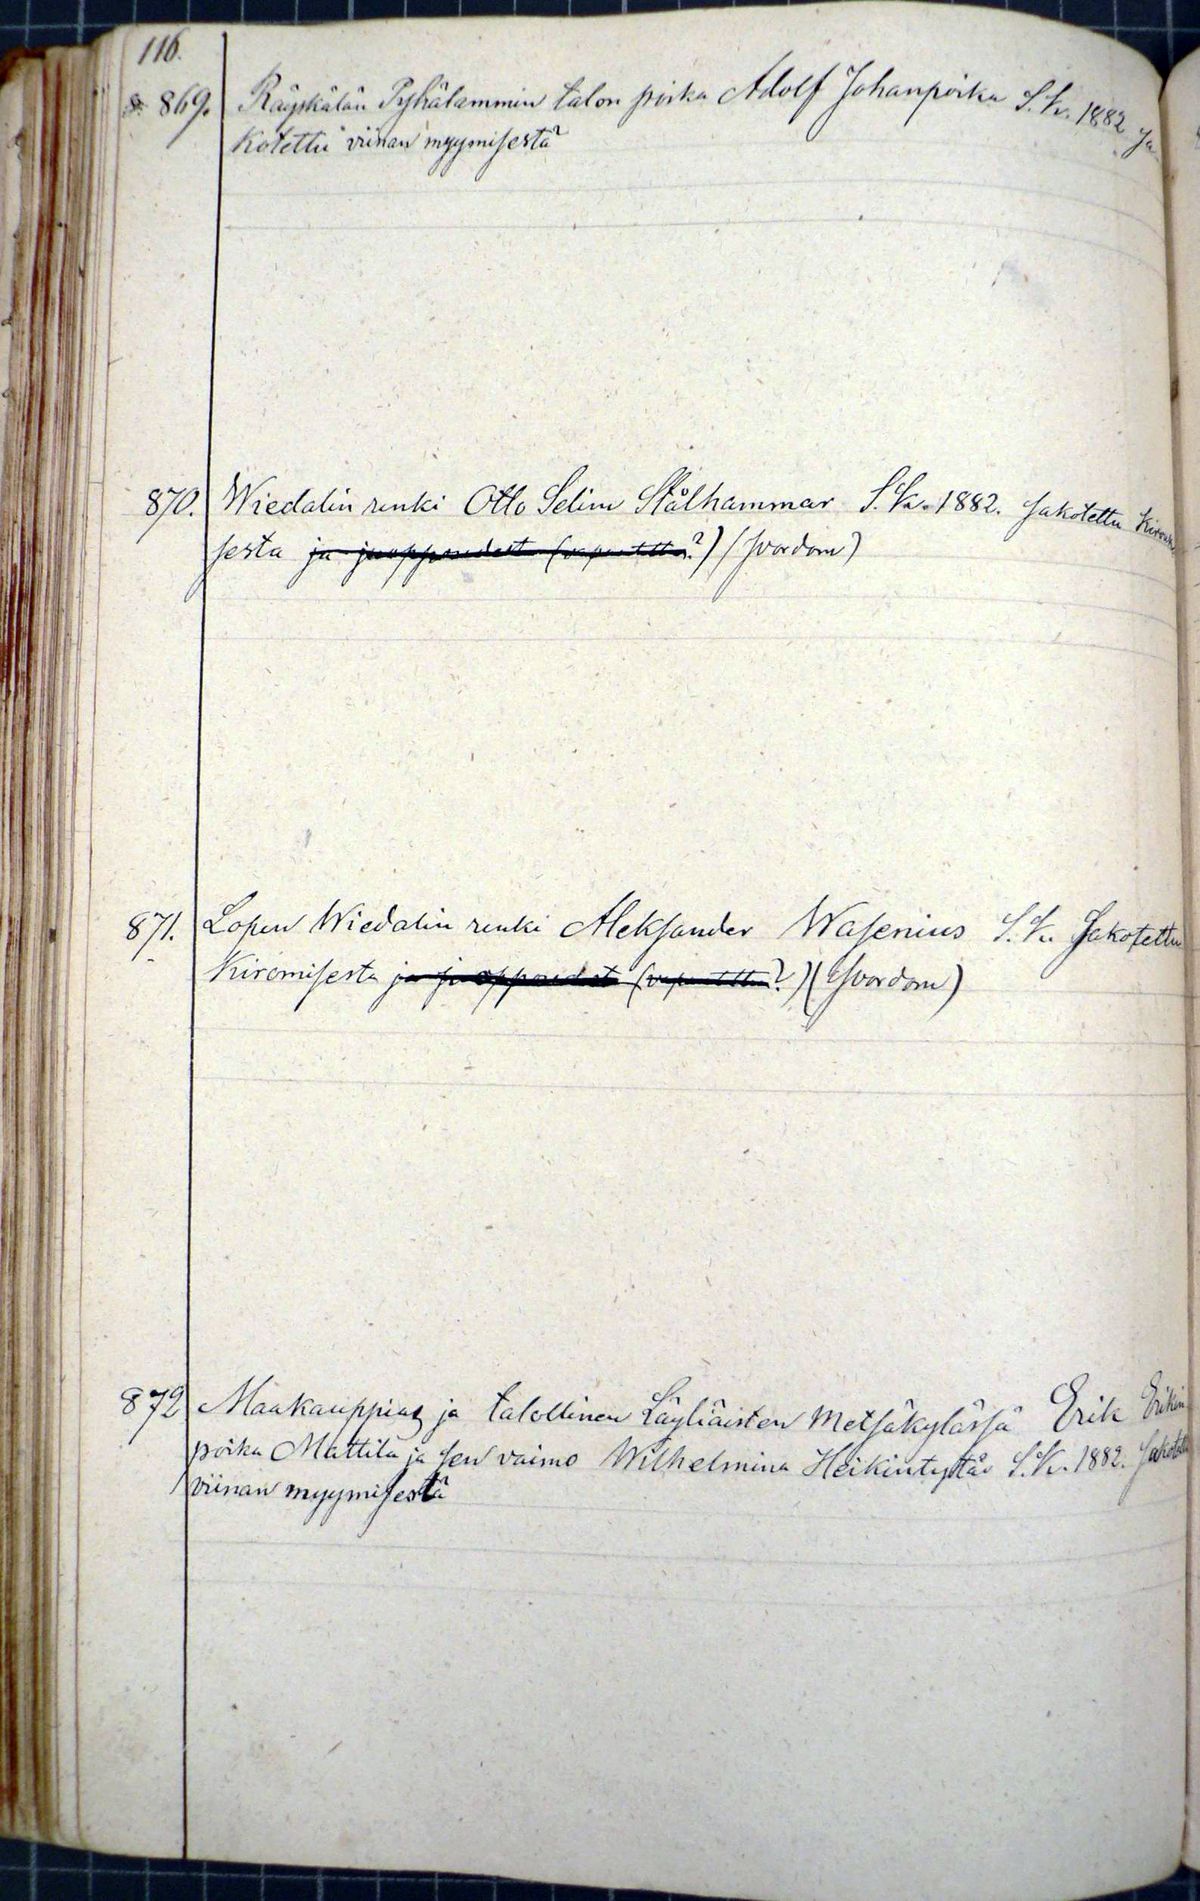 116.
869. Räyskälän Pyhälammin talon poika Adolf Johanpoika S. K. 1882 sa
kotettu viinan myymisestä
870. Wiedalin renki Otto Selim Stålhammar S. K. 1882. sakotettu kiromi
sesta ja juoppoudesta (vapautettu?) (svordom)
871. Lopen Wiedalin renki Aleksander Wasenius S. K. sakotettu
kiromisesta ja juoppoudesta (vapautettu?) (svordom)
872 Maakauppias ja talollinen Läyliäisten Metsäkylässä Erik Erikin
poika Mattila ja sen vaimo Wilhelmina Heikintytär S. K. 1882. sakotettu
viinan myymisestä